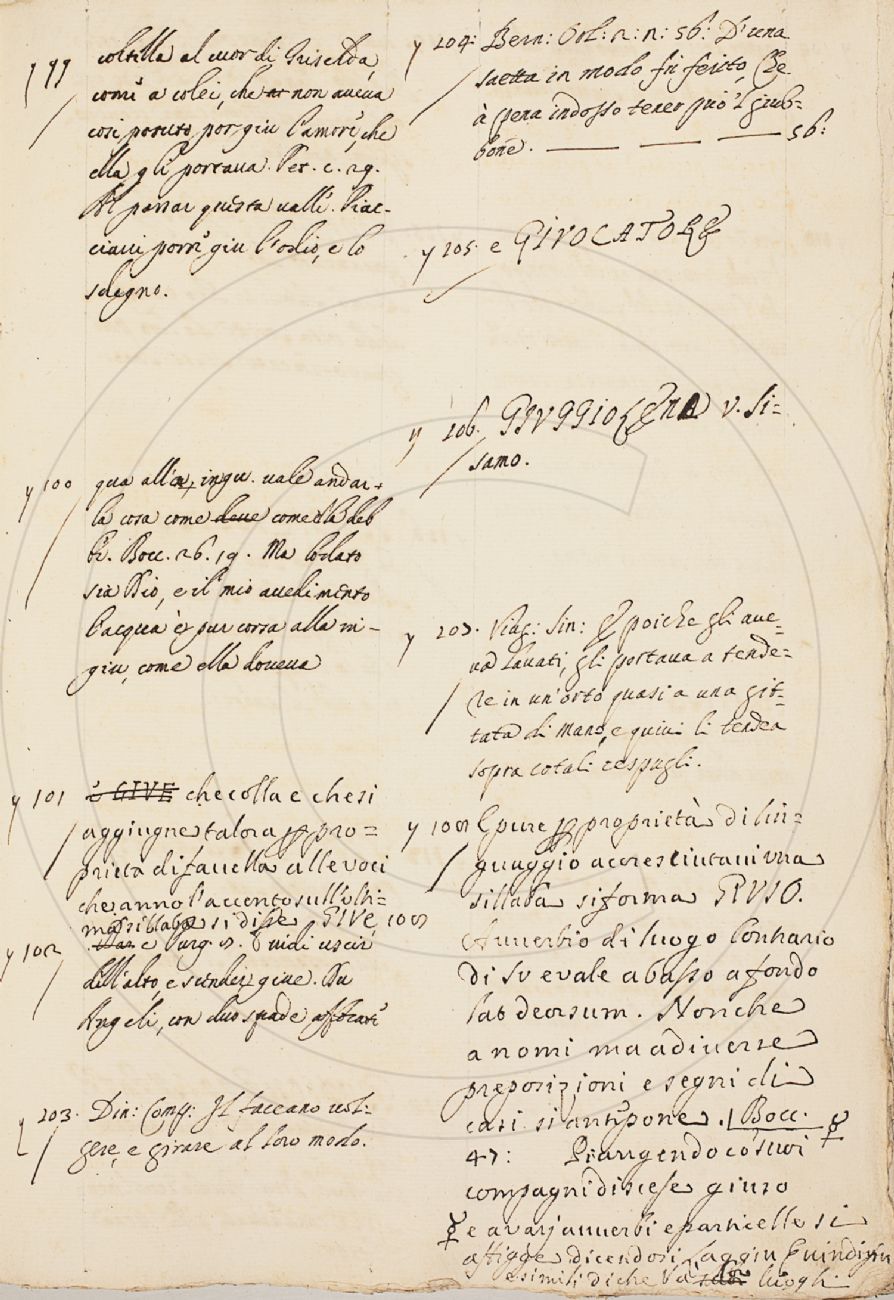 y 99 coltella al cuor di Griselda,
come a colei, che non aveva
così potuto por giu l'amore, che
ella gli portava. Pet. c. 29.
Al passar questa valle. Piac-
ciavi porre giu l'odio, e lo
sdegno.
y 100 qua all' in giu. vale andar
la cosa come deve come ella deb
be. Bocc. 26. 19. Ma lodato
sia Dio, e il mio avedimento
l'acqua è pur corsa alla in-
giu, come ella doveva
y 101 è GIVE che colla e che si
aggiugne talora p pro=
prieta di favella alle voci
che anno l'accento sull'ulti=
ma sillaba si disse GIVE, 100
y 102 Dan e Purg. 8. E vidi uscir
dell'alto, e scender giue. Du
Angeli, con duo spade affocate
y 103. Din: Comp: Il faceano vol-
gere, e girare al loro modo.
y 104: Bern: Orl: 2: n: 56: D'una
saetta in modo fu ferito, che
à pena indosso tener può 'l giub-
bone. 56:
y 105. e GIVOCATORE
y 106. GIVGGIOLENA v. Si=
samo.
y 107. Viag: Sin: E poiche gli ave=
va lavati, gli portava a tende=
re in un'orto quasi a una git=
tata di mano, e quivi li tendea
sopra cotali cespugli.
y 108 E pure p proprietà di lin=
guaggio accresciutavi una
sillaba si forma GIVSO.
Avverbio di luogo Contrario
di Su e vale abasso a fondo
lat deorsum. Non che
a nomi ma a diverse
preposizioni e segni di
casi si antipone. Bocc.
47: Piangendo co suoi
compagni discese giuso
e a varj avverbi e particelle si
affigge dicendosi Laggiu Quindigiu
e simili di che luogh